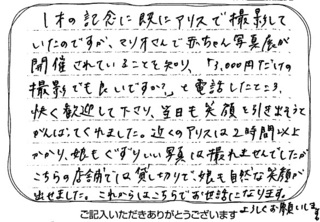 1才の記念に既にアリスで撮影して
いたのですが、マリオさんで赤ちゃん写真展が
開催されていることを知り、「3,000円だけの
撮影でも良いですか?」と電話したところ、
快く歓迎して下さり、当日も笑顔を引き出そうと
がんばってくれました。近くのアリスは2時間以上
かかり、娘もぐずりいい写真は撮れませんでしたが
こちらの店舗では貸し切りで、娘も自然な笑顔が
出せました。これからはこちらでお世話になります。
よろしくお願いします
ご記入いただきありがとうございます